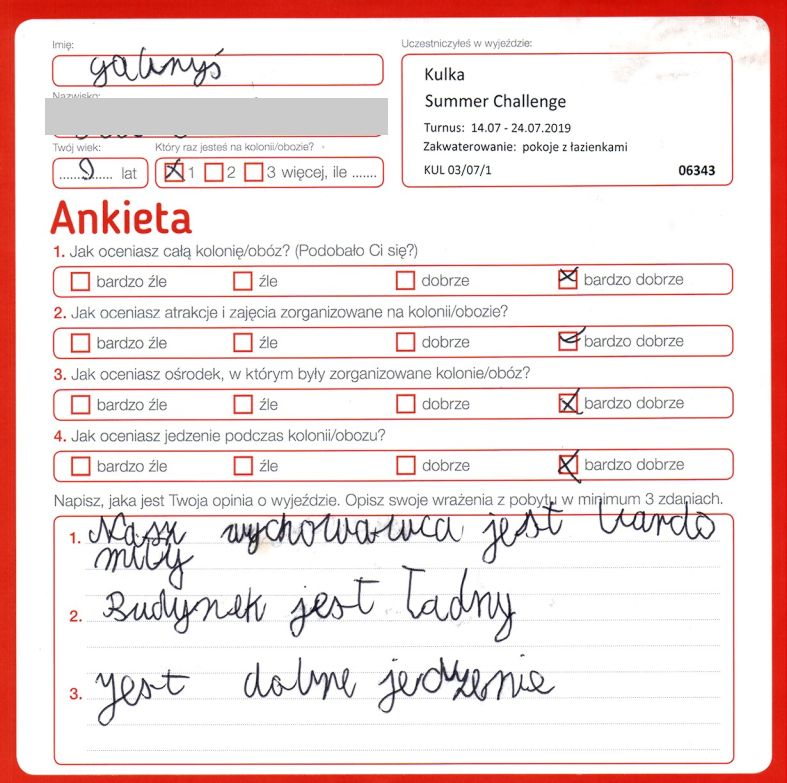 Imię:
Uczestniczyłeś w wyjeździe:
Kulka
Nazwisko:
Summer Challenge
Turnus: 14.07 - 24.07.2019
Zakwaterowanie: pokoje z łazienkami
KUL 03/07/1 06343
Twój wiek: Który raz jesteś na kolonii/obozie?
9 lat 1 2 3 więcej, ile .......
Ankieta
1. Jak oceniasz całą kolonię/obóz? (Podobało Ci się?)
bardzo źle źle dobrze bardzo dobrze
2. Jak oceniasz atrakcje i zajęcia zorganizowane na kolonii/obozie?
bardzo źle źle dobrze bardzo dobrze
3. Jak oceniasz ośrodek, w którym były zorganizowane kolonie/obóz?
bardzo źle źle dobrze bardzo dobrze
4. Jak oceniasz jedzenie podczas kolonii/obozu?
bardzo źle źle dobrze bardzo dobrze
Napisz, jaka jest Twoja opinia o wyjeździe. Opisz swoje wrażenia z pobytu w minimum 3 zdaniach.
1. Nasz wychowawca jest bardo
miły
2. Budynek jest ładny
3. jest dobne jedzenie